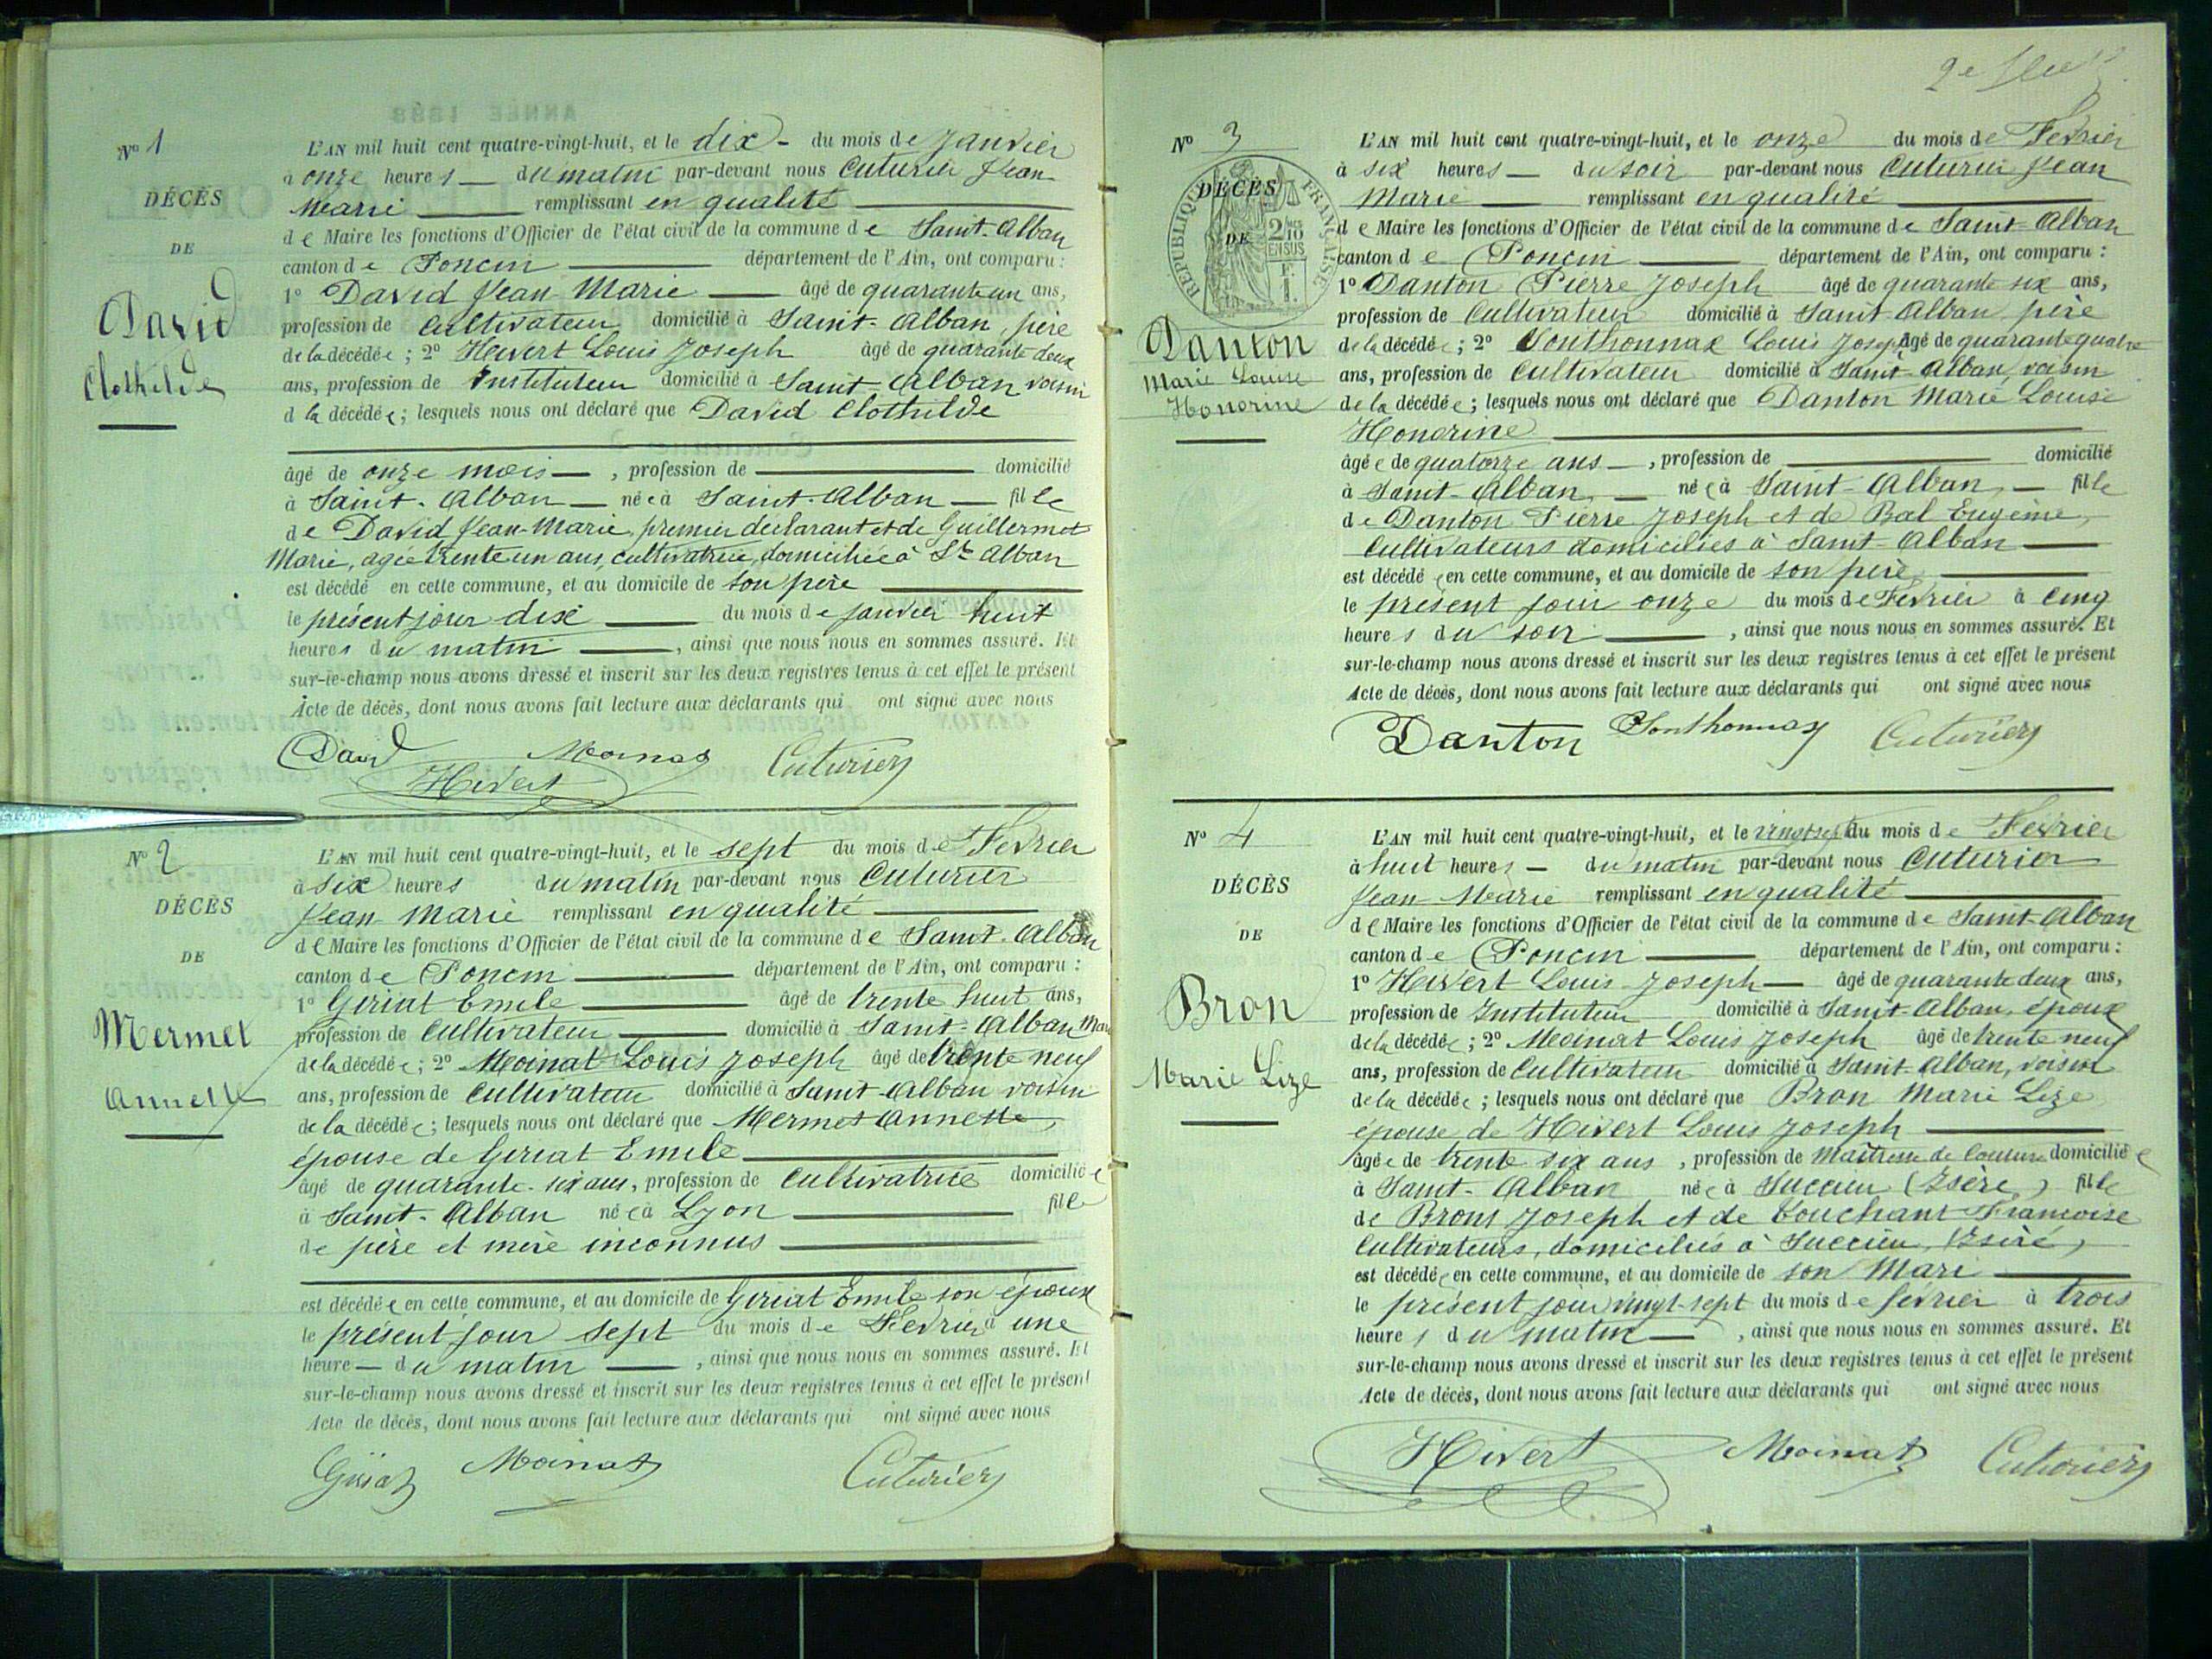 N° 1
DÉCÈS
DE
David
Clothilde
L'AN mil huit cent quatre-vingt-huit, et le dix - du mois de Janvier
à onze heures du matin par-devant nous Cuturier Jean
Marie remplissant en qualité
de Maire les fonctions d'Officier de l'état civil de la commune de Saint-Alban
canton de Poncin département de l'Ain, ont comparu :
1° David Jean Marie âgé de quarante un ans,
profession de Cultivateur domicilié à Saint-Alban, père
de la décédée ; 2° Hivert Louis Joseph âgé de quarante deux
ans, profession de Instituteur domicilié à Saint-Alban voisin
d la décédée ; lesquels nous ont déclaré que David Clothilde
âgé de onze mois, profession de domicilié
à Saint-Alban née à Saint-Alban fille
de David Jean-Marie, premier déclarant et de Guillermet
Marie, agée trente un ans, cultivatrice, domiciliée à St Alban
est décédé en cette commune, et au domicile de son père
le présent jour dix du mois de janvier huit
heures du matin, ainsi que nous nous en sommes assuré. Et
sur-le-champ nous avons dressé et inscrit sur les deux registres tenus à cet effet le présent
Acte de décès, dont nous avons fait lecture aux déclarants qui ont signé avec nous
David Moinat Cuturier
Hivert
N° 2
DÉCÈS
DE
Mermet
Annette
L'AN mil huit cent quatre-vingt-huit, et le sept du mois de Fevrier
à six heures du matin par-devant nous Cuturier
Jean Marie remplissant en qualité
de Maire les fonctions d'Officier de l'état civil de la commune de Saint-Alban
canton de Poncin département de l'Ain, ont comparu :
1° Geriat Emile âgé de trente huit ans,
profession de Cultivateur domicilié à Saint-Alban Mari
de la décédée ; 2° Moinat Louis Joseph âgé de trente neuf
ans, profession de Cultivateur domicilié à Saint-Alban voisin
de la décédée ; lesquels nous ont déclaré que Mermet Annette,
épouse de Geriat Emile
âgé de quarante-six ans, profession de Cultivatrice domiciliée
à Saint-Alban née à Lyon fille
de père et mère inconnus
est décédée en cette commune, et au domicile de Geriat Emile son époux
le présent jour sept du mois de Fevrier à une
heure du matin, ainsi que nous nous en sommes assuré. Et
sur-le-champ nous avons dressé et inscrit sur les deux registres tenus à cet effet le présent
Acte de décès, dont nous avons fait lecture aux déclarants qui ont signé avec nous
Geriat Moinat Cuturier
2e
N° 3
DÉCÈS
DE
RÉPUBLIQUE FRANÇAISE
2/10 EN SUS
Danton
Marie Louise
Honorine
L'AN mil huit cent quatre-vingt-huit, et le onze du mois de Fevrier
à six heures du soir par-devant nous Cuturier Jean
Marie remplissant en qualité
de Maire les fonctions d'Officier de l'état civil de la commune de Saint-Alban
canton de Poncin département de l'Ain, ont comparu :
1° Danton Pierre Joseph âgé de quarante six ans,
profession de Cultivateur domicilié à Saint Alban père
de la décédée ; 2° Sonthonnax Louis Joseph âgé de quarante quatre
ans, profession de Cultivateur domicilié à Saint-Alban, voisin
de la décédée ; lesquels nous ont déclaré que Danton Marie Louise
Honorine
âgée de quatorze ans, profession de domicilié
à Saint-Alban, née à Saint-Alban, fille
de Danton Pierre Joseph et de Bal Eugénie,
Cultivateurs domiciliés à Saint-Alban
est décédée en cette commune, et au domicile de son père,
le présent jour onze du mois de Fevrier à cinq
heures du soir, ainsi que nous nous en sommes assuré. Et
sur-le-champ nous avons dressé et inscrit sur les deux registres tenus à cet effet le présent
Acte de décès, dont nous avons fait lecture aux déclarants qui ont signé avec nous
Danton Sonthonnax Cuturier
N° 4
DÉCÈS
DE
Bron
Marie Lize
L'AN mil huit cent quatre-vingt-huit, et le vingt sept du mois de Fevrier
à huit heures - du matin par-devant nous Cuturier
Jean-Marie remplissant en qualité
de Maire les fonctions d'Officier de l'état civil de la commune de Saint-Alban
canton de Poncin département de l'Ain, ont comparu :
1° Hivert Louis Joseph âgé de quarante deux ans,
profession de Instituteur domicilié à Saint-Alban, époux
de la décédée ; 2° Moinat Louis Joseph âgé de trente neuf
ans, profession de Cultivateur domicilié à Saint-Alban, voisin
de la décédée ; lesquels nous ont déclaré que Bron Marie Lize
épouse de Hivert Louis Joseph
âgée de trente six ans, profession de Maîtresse de Couture domiciliée
à Saint-Alban née à Succieu (Isère,) fille
de Brons Joseph et de Couchant Françoise
Cultivateurs, domiciliés à Succieu, (Isère,
est décédée en cette commune, et au domicile de son Mari
le présent jour vingt-sept du mois de février à trois
heures du matin, ainsi que nous nous en sommes assuré. Et
sur-le-champ nous avons dressé et inscrit sur les deux registres tenus à cet effet le présent
Acte de décès, dont nous avons fait lecture aux déclarants qui ont signé avec nous
Hivert Moinat Cuturier